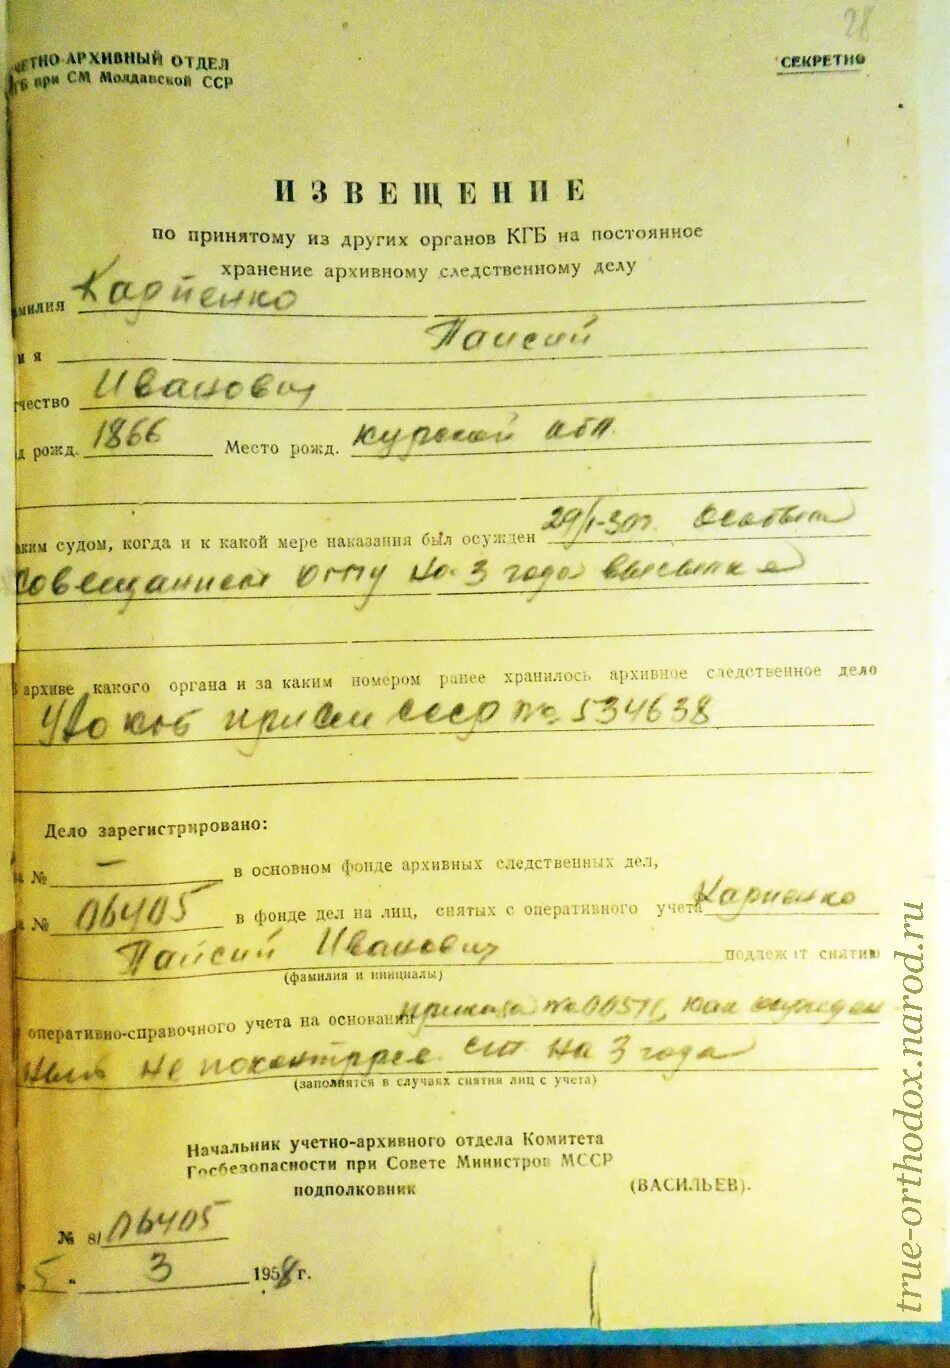 28
ЧЕТНО-АРХИВНЫЙ ОТДЕЛ
ГБ при СМ Молдавской ССР
СЕКРЕТНО
ИЗВЕЩЕНИЕ
по принятому из других органов КГБ на постоянное
хранение архивному следственному делу
амилия Карпенко
мя Паисий
тчество Иванович
д рожд. 1866 Место рожд. Курской обл.
аким судом, когда и к какой мере наказания был осужден 29/I-30г. Особым
совещанием ОГПУ на 3 года высылке
В архиве какого органа и за каким номером ранее хранилось архивное следственное дело
УАО КГБ при СМ СССР No 534638
Дело зарегистрировано:
а № — в основном фонде архивных следственных дел,
а № П6405 в фонде дел на лиц, снятых с оперативного учета Карпенко
Паисий Иванович подлежит снятию
(фамилия и инициалы)
оперативно-справочного учета на основании приказа No 00511, как осужден
не по контррев. ст. на 3 года
(заполнятся в случаях снятия лиц с учета)
Начальник учетно-архивного отдела Комитета
Госбезопасности при Совете Министров МССР
подполковник (ВАСИЛЬЕВ).
№ 8/П6405
5 " 3 1958 г.
true-orthodox.narod.ru